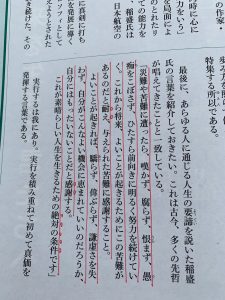 特集する所以である。
最後に、あらゆる人に通じる人生の要諦を説いた稲盛
氏の言葉を紹介しておきたい。これは古今、多くの先哲
が唱えてきたことと一致している。
「災難や苦難に遭ったら、嘆かず、腐らず、恨まず、愚
痴をこぼさず、ひたすら前向きに明るく努力を続けてい
く。これから将来、よいことが起きるためにこの苦難が
あるのだと耐え、与えられた苦難に感謝すること。
よいことが起きれば、驕らず、偉ぶらず、謙虚さを失
わず、自分がこんなよい機会に恵まれていいのだろうか、
自分にはもったいないことだと感謝する。
これが素晴らしい人生を生きるための絶対の条件です」
実行するは我にあり。実行を積み重ねて初めて真価を
発揮する言葉である。